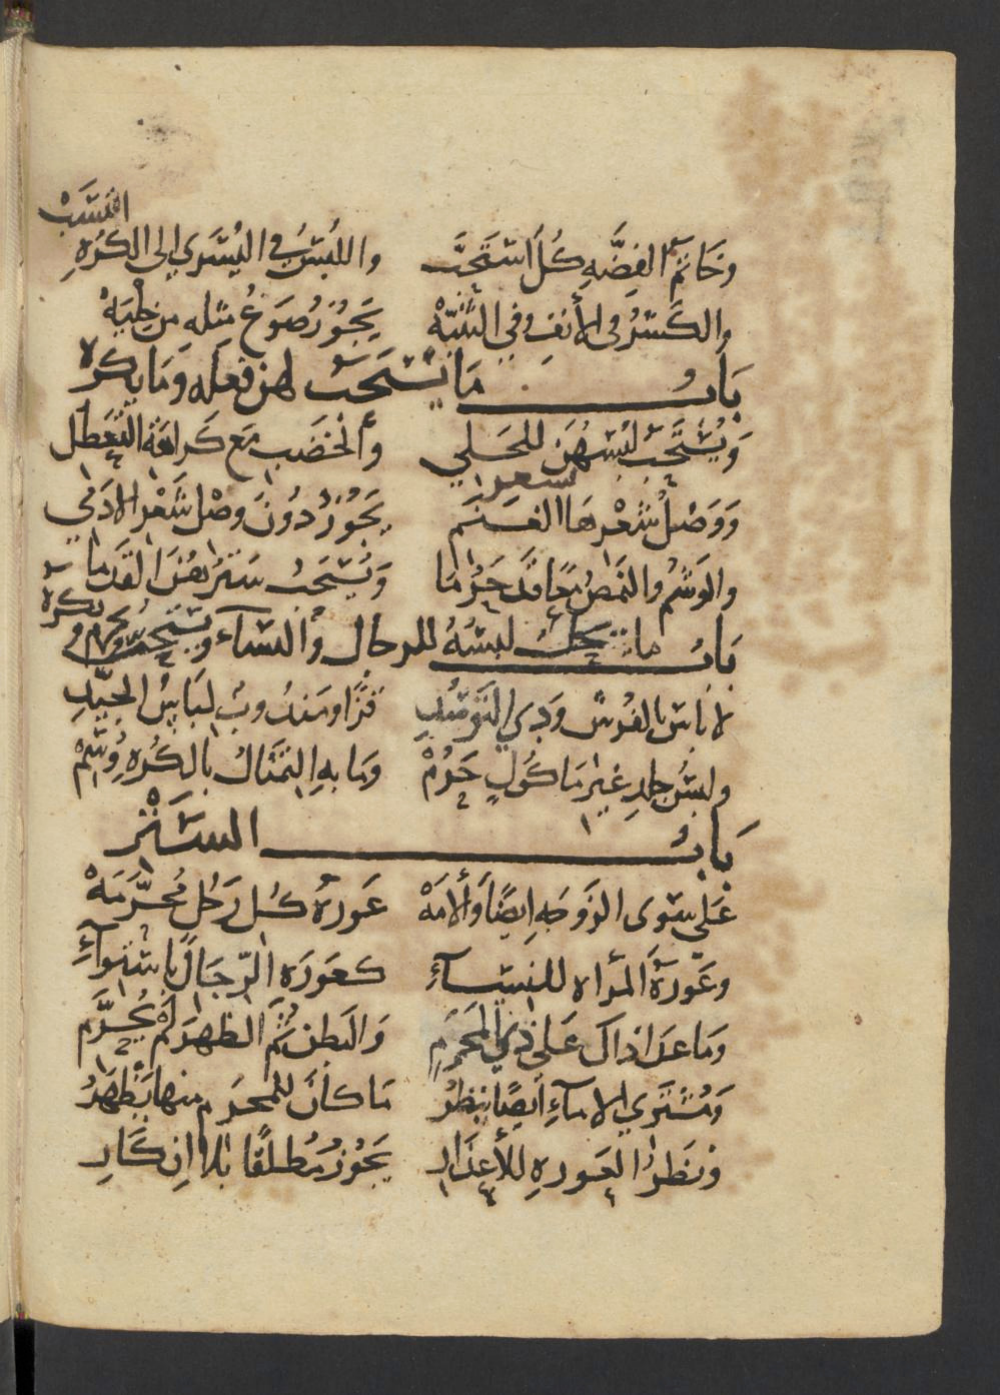 وخاتم الفضه كل استحب واللبس في اليسرى الى الكره انتسب
والكسر في الأنف وفي الثنيه يجوز صوغ مثله من حليه
باب ما يستحب لهن فعله وما يكره
ويستحب لبسهن للحلي والخضب مع كراهة التعطل
ووصل شعرها الغنم يجوز دون وصل شعر الادمي
شعر
والوشم والنمص معا قد حرما ويستحب سترهن القدما
باب ما يحل لبسه للرجال والنساء ويستحب ويحرم ويكره
لا باس بالفرش وذي التوسد قزا ومندوب لباس الجيد
ولبس جلد غير ماكول حرم وما به التمثال بالكره وسم
باب الستر
على سوى الزوجه ايضا والامه عورة كل رجل محرمه
وعورة المراه للنسآء كعورة الرجال باستوآء
وما عدا ذاك على ذي المحرم والبطن ثم الظهر له يحرم
ومشتري الامآء ايضا ينظر ما كان للمحرم منها يظهر
ونظر العوره للأعذار يجوز مطلقا بلا انكار